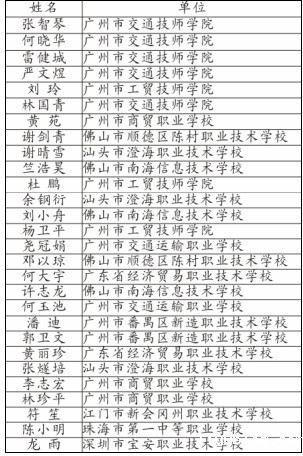 姓名 单位
张智琴 广州市交通技师学院
何晓华 广州市交通技师学院
雷健城 广州市交通技师学院
严文煜 广州市交通技师学院
刘玲 广州市工贸技师学院
林国青 广州市交通技师学院
黄苑 广州市商贸职业学校
谢剑青 佛山市顺德区陈村职业技术学校
谢晴雪 汕头市澄海职业技术学校
竺浩昊 佛山市南海信息技术学校
杜鹏 广州市工贸技师学院
余钢衍 汕头市澄海职业技术学校
刘小舟 佛山市南海信息技术学校
杨卫平 广州市工贸技师学院
尧冠娟 广州市交通运输职业学校
邓以琼 佛山市顺德区陈村职业技术学校
何大宇 广东省经济贸易职业技术学校
许志龙 佛山市南海信息技术学校
何玉池 广州市交通运输职业学校
潘迪 广州市番禺区新造职业技术学校
郭卫文 广州市番禺区新造职业技术学校
黄丽珍 广东省经济贸易职业技术学校
张燧培 汕头市澄海职业技术学校
李志宏 广州市商贸职业学校
林珍平 广州市商贸职业学校
符笙 江门市新会冈州职业技术学校
陈小明 珠海市第一中等职业学校
龙雨 深圳市宝安职业技术学校